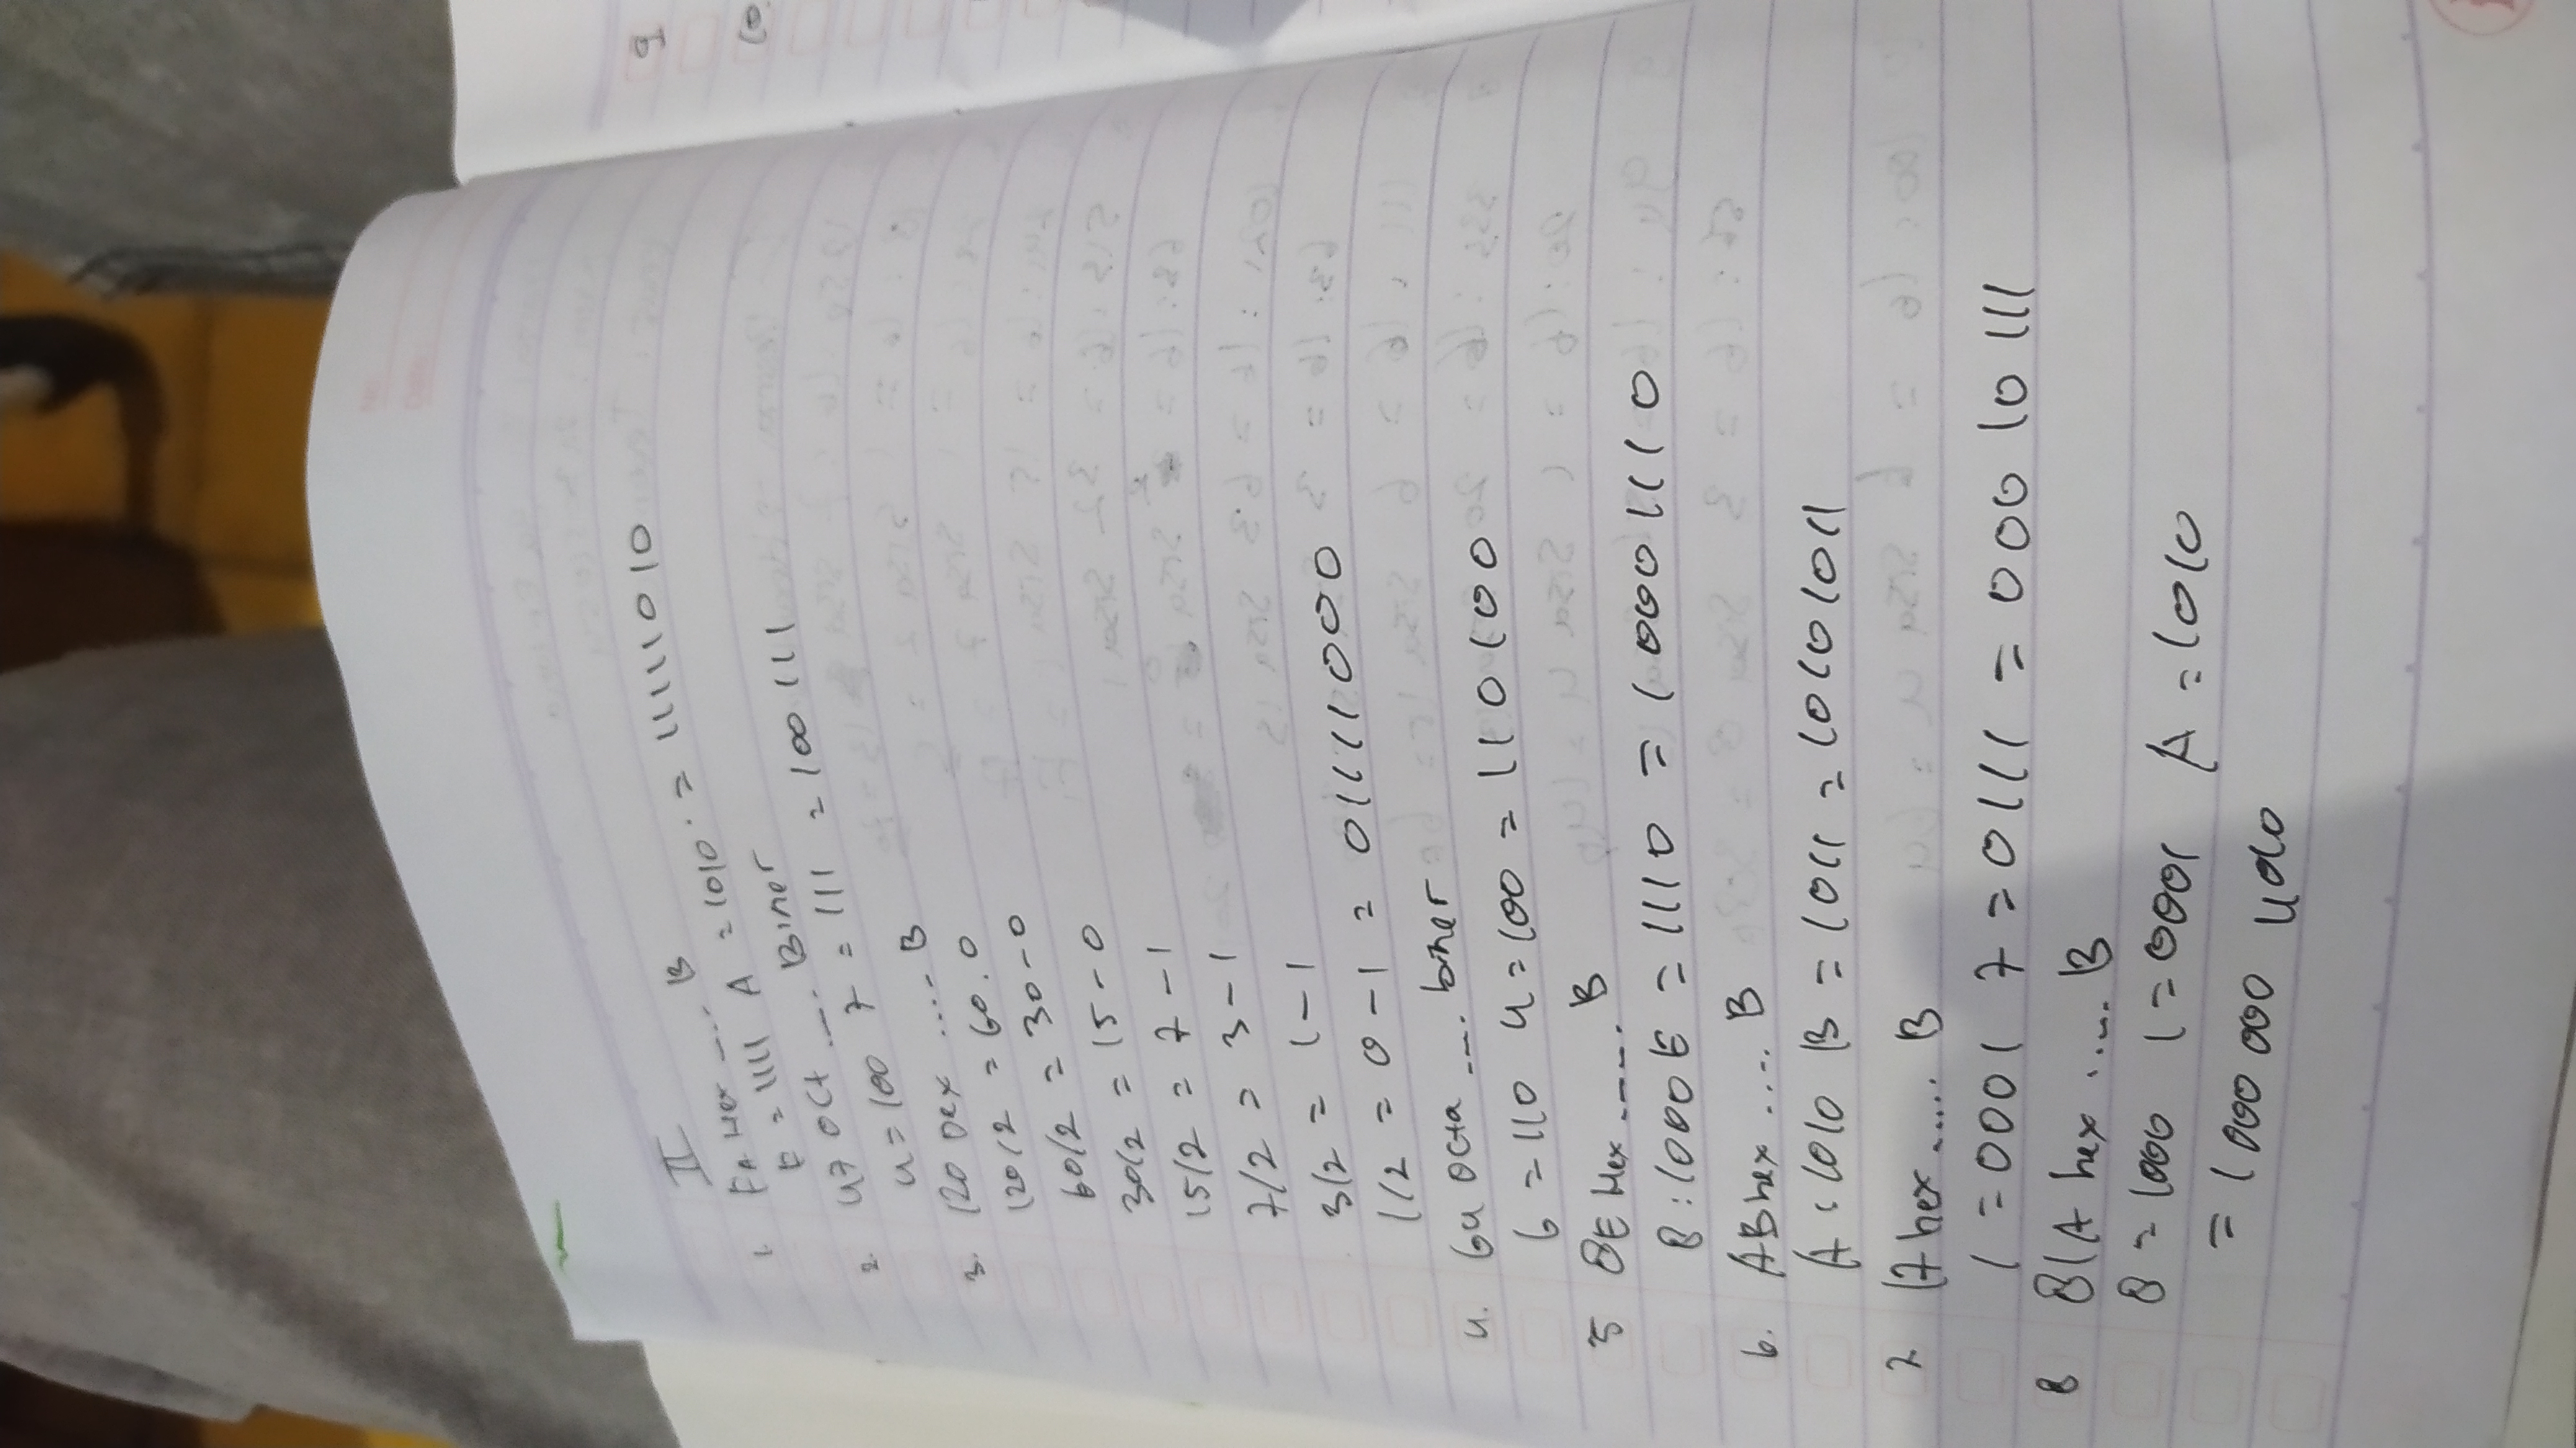 II
1. FA Hex .... B
F = 1111 A = 1010 = 11111010
2. 47 Oct .... Biner
4 = 100 7 = 111 = 100111
3. 120 Dex ..... B
120/2 = 60.0
60/2 = 30-0
30/2 = 15-0
15/2 = 7-1
7/2 = 3-1
3/2 = 1-1
1/2 = 0-1 = 01111000
4. 64 Octa .... biner
6 = 110 4 = 100 = 110100
5 8E Hex ...... B
8 : 1000 E = 1110 = 10001110
6. AB hex ..... B
A : 1010 B = 1011 = 10101011
7 17 hex ..... B
1 = 0001 7 = 0111 = 00010111
8 81A hex ..... B
8 = 1000 1 = 0001 A = 1010
= 1000 000
9
10.